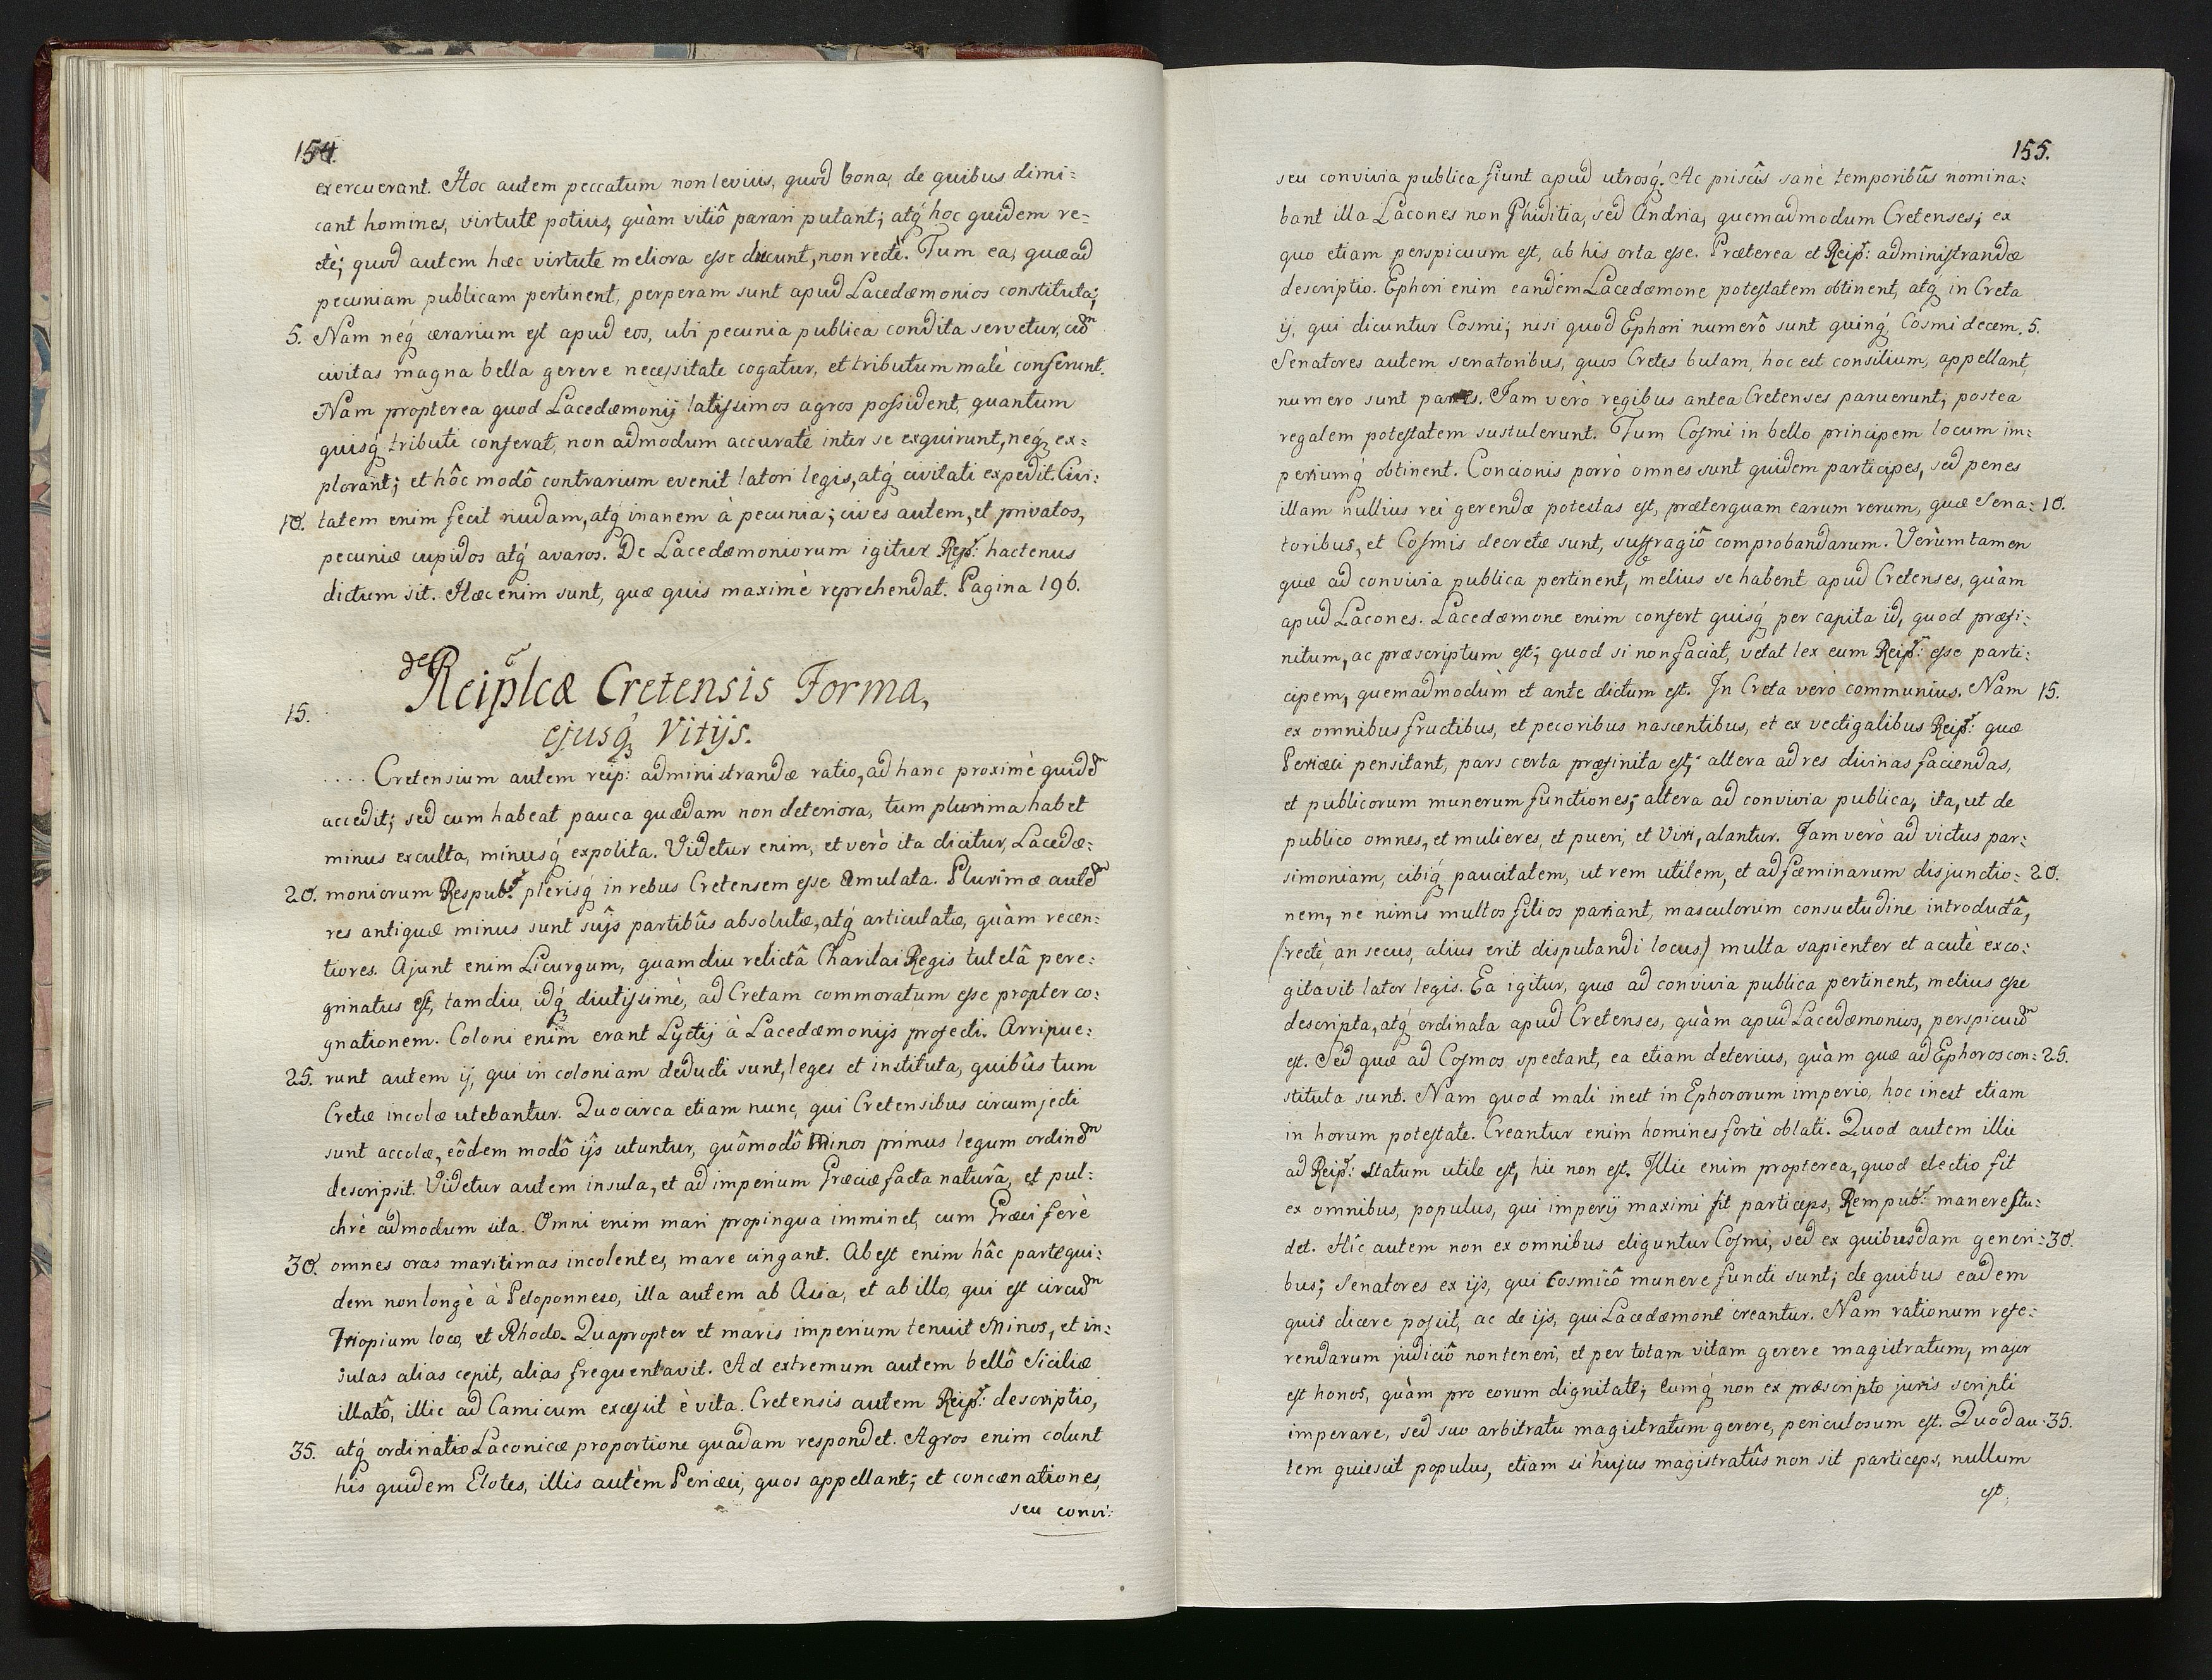 154.
exercuerant. Hoc autem peccatum non levius, quod bona, de quibus dimi:
cant homines, virtute potius, quàm vitiô parari putant; atq́ hoc quidem re=
ctè; quod autem hæc virtute meliora esse ducunt, non rectè. Tum ea, quæ ad
pecuniam publicam pertinent, perperam sunt apud Lacedæmonios constituta;
5. Nam neq́ ærarium est apud eos, ubi pecunia publica condita servetur, cũ
civitas magna bella gerere necessitate cogatur, et tributum malè conferunt.
Nam propterea quod Lacedæmonij latissimos agros possident, quantum
quisq́ tributi conferat, non admodum accuratè inter se exquirunt, neq́ ex=
plorant; et hôc modô contrarium evenit latori legis, atq́ civitati expedit. Civi:
10. tatem enim fecit nudam, atq́ inanem à pecunia; cives autem, et privatos,
pecuniæ cupidos atq́ avaros. De Lacedæmoniorum igitur Rep: hactenus
dictum sit. Hæc enim sunt, quæ quis maximè reprehendat. Pagina 196.
de Reiplcæ Cretensis Forma,
15.
ejusq́ Vitijs.
.... Cretensium autem reip: administrandæ ratio, ad hanc proximè quidẽ
accedit; sed cum habeat pauca quædam non deteriora, tum plurima habet
minus exculta, minusq́ expolita. Videtur enim, et verò ita dicitur, Lacedæ=
20. moniorum Respub: plerisq́ in rebus Cretensem esse æmulata. Plurimæ autẽ
res antiquæ minus sunt suîjs partibûs absolutæ, atq́ articulatæ, quàm recen:
tiores. Ajunt enim Licurgum, quamdiu relictâ Charilai Regis tutelâ pere:
grinatus est, tamdiu, idq́ diutissimè, ad Cretam commoratum esse propter co:
gnationem. Coloni enim erant Lyctij à Lacedæmonijs profecti. Arripue:
25. runt autem ij, qui in coloniam deducti sunt, leges et instituta, quibûs tum
Cretæ incolæ utebantur. Quocirca etiam nunc, qui Cretensibus circumjecti
sunt accolæ, eôdem modô ijs utuntur, quômodô Minos primus legum ordinẽ
descripsit. Videtur autem insula, et ad imperium Græciæ facta naturâ, et pul:
chrè admodum sita. Omni enim mari propinqua imminet, cum Græci ferè
30. omnes oras maritimas incolentes, mare cingant. Abest enim hâc parte qui:
dem non longè à Peloponneso, illa autem ab Asia, et ab illo, qui est circũ
Triopium loco, et Rhodo. Quapropter et maris imperium tenuit Minos, et in:
sulas alias cepit, alias frequentavit. Ad extremum autem bellô Siciliæ
illatô, illic ad Camicum excessit è vita. Cretensis autem Reip: descriptio,
35. atq́ ordinatio Laconicæ proportione quadam respondet. Agros enim colunt
his quidem Elotes, illis autem Periæci, quos appellant; et concænationes,
seu convi:
155.
seu convivia publica fiunt apud utrosq́. Ac priscîs sanè temporibûs nomina:
bant illa Lacones non Phiditia, sed Andria, quemadmodum Cretenses; ex
quo etiam perspicuum est, ab his orta esse. Præterea et Reip: administrandæ
descriptio. Ephori enim eandem Lacedæmone potestatem obtinent, atq́ in Creta
ij, qui dicuntur Cosmi; nisi quod Ephori numerô sunt quinq́, Cosmi decem. 5.
Senatores autem senatoribus, quos Cretes bulam, hoc est consilium, appellant,
numero sunt pares. Jam verò regibus antea Cretenses paruerunt; postea
regalem potestatem sustulerunt. Tum Cosmi in bello principem locum im:
periumq́ obtinent. Concionis porrò omnes sunt quidem participes, sed penes
illam nullius rei gerendæ potestas est, præterquam earum rerum, quæ Sena: 10.
toribus, et Cosmis decretæ sunt, suffragiô comprobandarum. Verùm tamen
quæ ad convivia publica pertinent, melius se habent apud Cretenses, quàm
apud Lacones. Lacedæmone enim confert quisq́ per capita id, quod præfi:
nitum, ac præscriptum est; quod si non faciat, vetat lex eum Reip: esse parti:
cipem, quemadmodùm et ante dictum est. In Creta verò communius. Nam 15.
ex omnibus fructibus, et pecoribus nascentibus, et ex vectigalibus Reip: quæ
Periæci pensitant, pars certa præfinita est; altera ad res divinas faciendas,
et publicorum munerum functiones; altera ad convivia publica, ita, ut de
publico omnes, et mulieres, et pueri, et Viri, alantur. Jam verò ad victus par:
simoniam, cibiq́ paucitatem, ut rem utilem, et ad fæminarum disjunctio: 20.
nem, ne nimis multos filios pariant, masculorum consuetudine introductâ,
(rectè, an secus, alius erit disputandi locus) multa sapienter et acutè exco:
gitavit lator legis. Ea igitur, quæ ad convivia publica pertinent, melius esse
descripta, atq́ ordinata apud Cretenses, quàm apud Lacedæmonios, perspicuũ
est. Sed quæ ad Cosmos spectant, ea etiam deterius, quàm quæ ad Ephoros con: 25.
stituta sunt. Nam quod mali inest in Ephororum imperio, hoc inest etiam
in horum potestate. Creantur enim homines fortè oblati. Quod autem illic
ad Reip: statum utile est, hic non est. Illic enim propterea, quod electio fit
ex omnibus, populus, qui imperij maximi fit particeps, Rempub: manere stu:
det. Hîc autem non ex omnibus eliguntur Cosmi, sed ex quibusdam generi: 30.
bus; Senatores ex ijs, qui Cosmicô munere functi sunt; de quibus eadem
quis dicere possit, ac de ijs, qui Lacedæmone creantur. Nam rationum refe:
rendarum judiciô non teneri, et per totam vitam gerere magistratum, major
est honos, quàm pro eorum dignitate; Eumq́ non ex præscripto juris scripti
imperare, sed suo arbitratu magistratum gerere, periculosum est. Quod au: 35.
tem quiescit populus, etiam si hujus magistratûs non sit particeps, nullum
est,